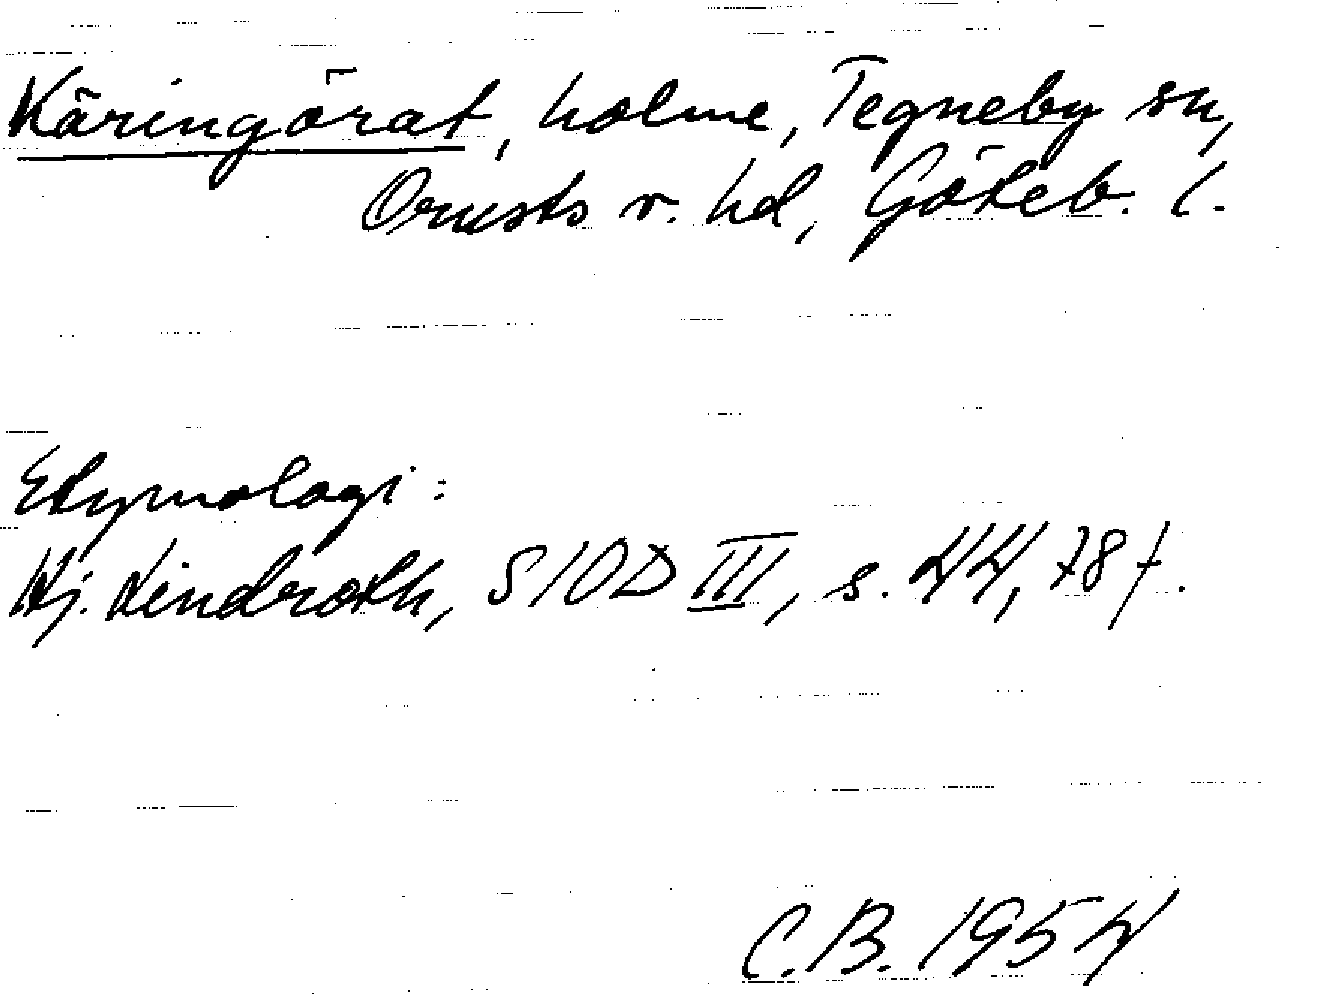 Käringörat, holme, Tegneby sn,
Orusts v. hd, Göteb. l.
Etymologi:
Hj. Lindroth, SIOD III, s. 44, 78 f.
C.B. 1954